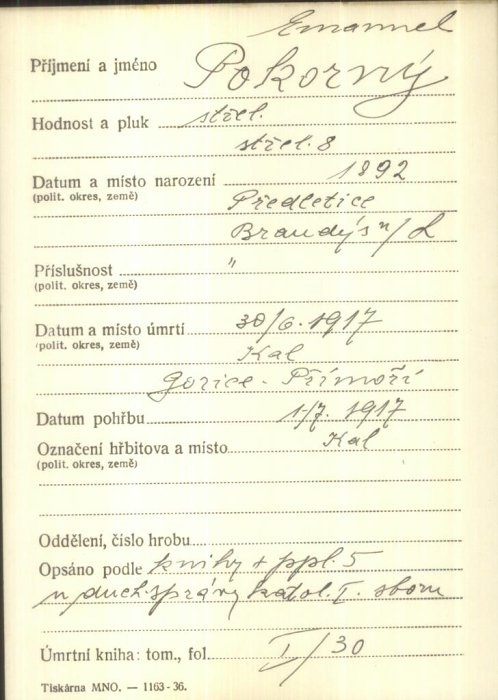 Emanuel
Příjmení a jméno Pokorný
Hodnost a pluk střel.
střel. 8
Datum a místo narození 1892
(polit. okres, země) Předletice
Brandýs n/L
Příslušnost "
(polit. okres, země)
Datum a místo úmrtí 30/6. 1917
(polit. okres, země) Kal
Gorice - Přímoří
Datum pohřbu 1/7. 1917
Označení hřbitova a místo Kal
(polit. okres, země)
Oddělení, číslo hrobu
Opsáno podle knihy + ppl. 5
u duch. správy katol. I. sboru
Úmrtní kniha: tom., fol. I/30
Tiskárna MNO. — 1163-36.